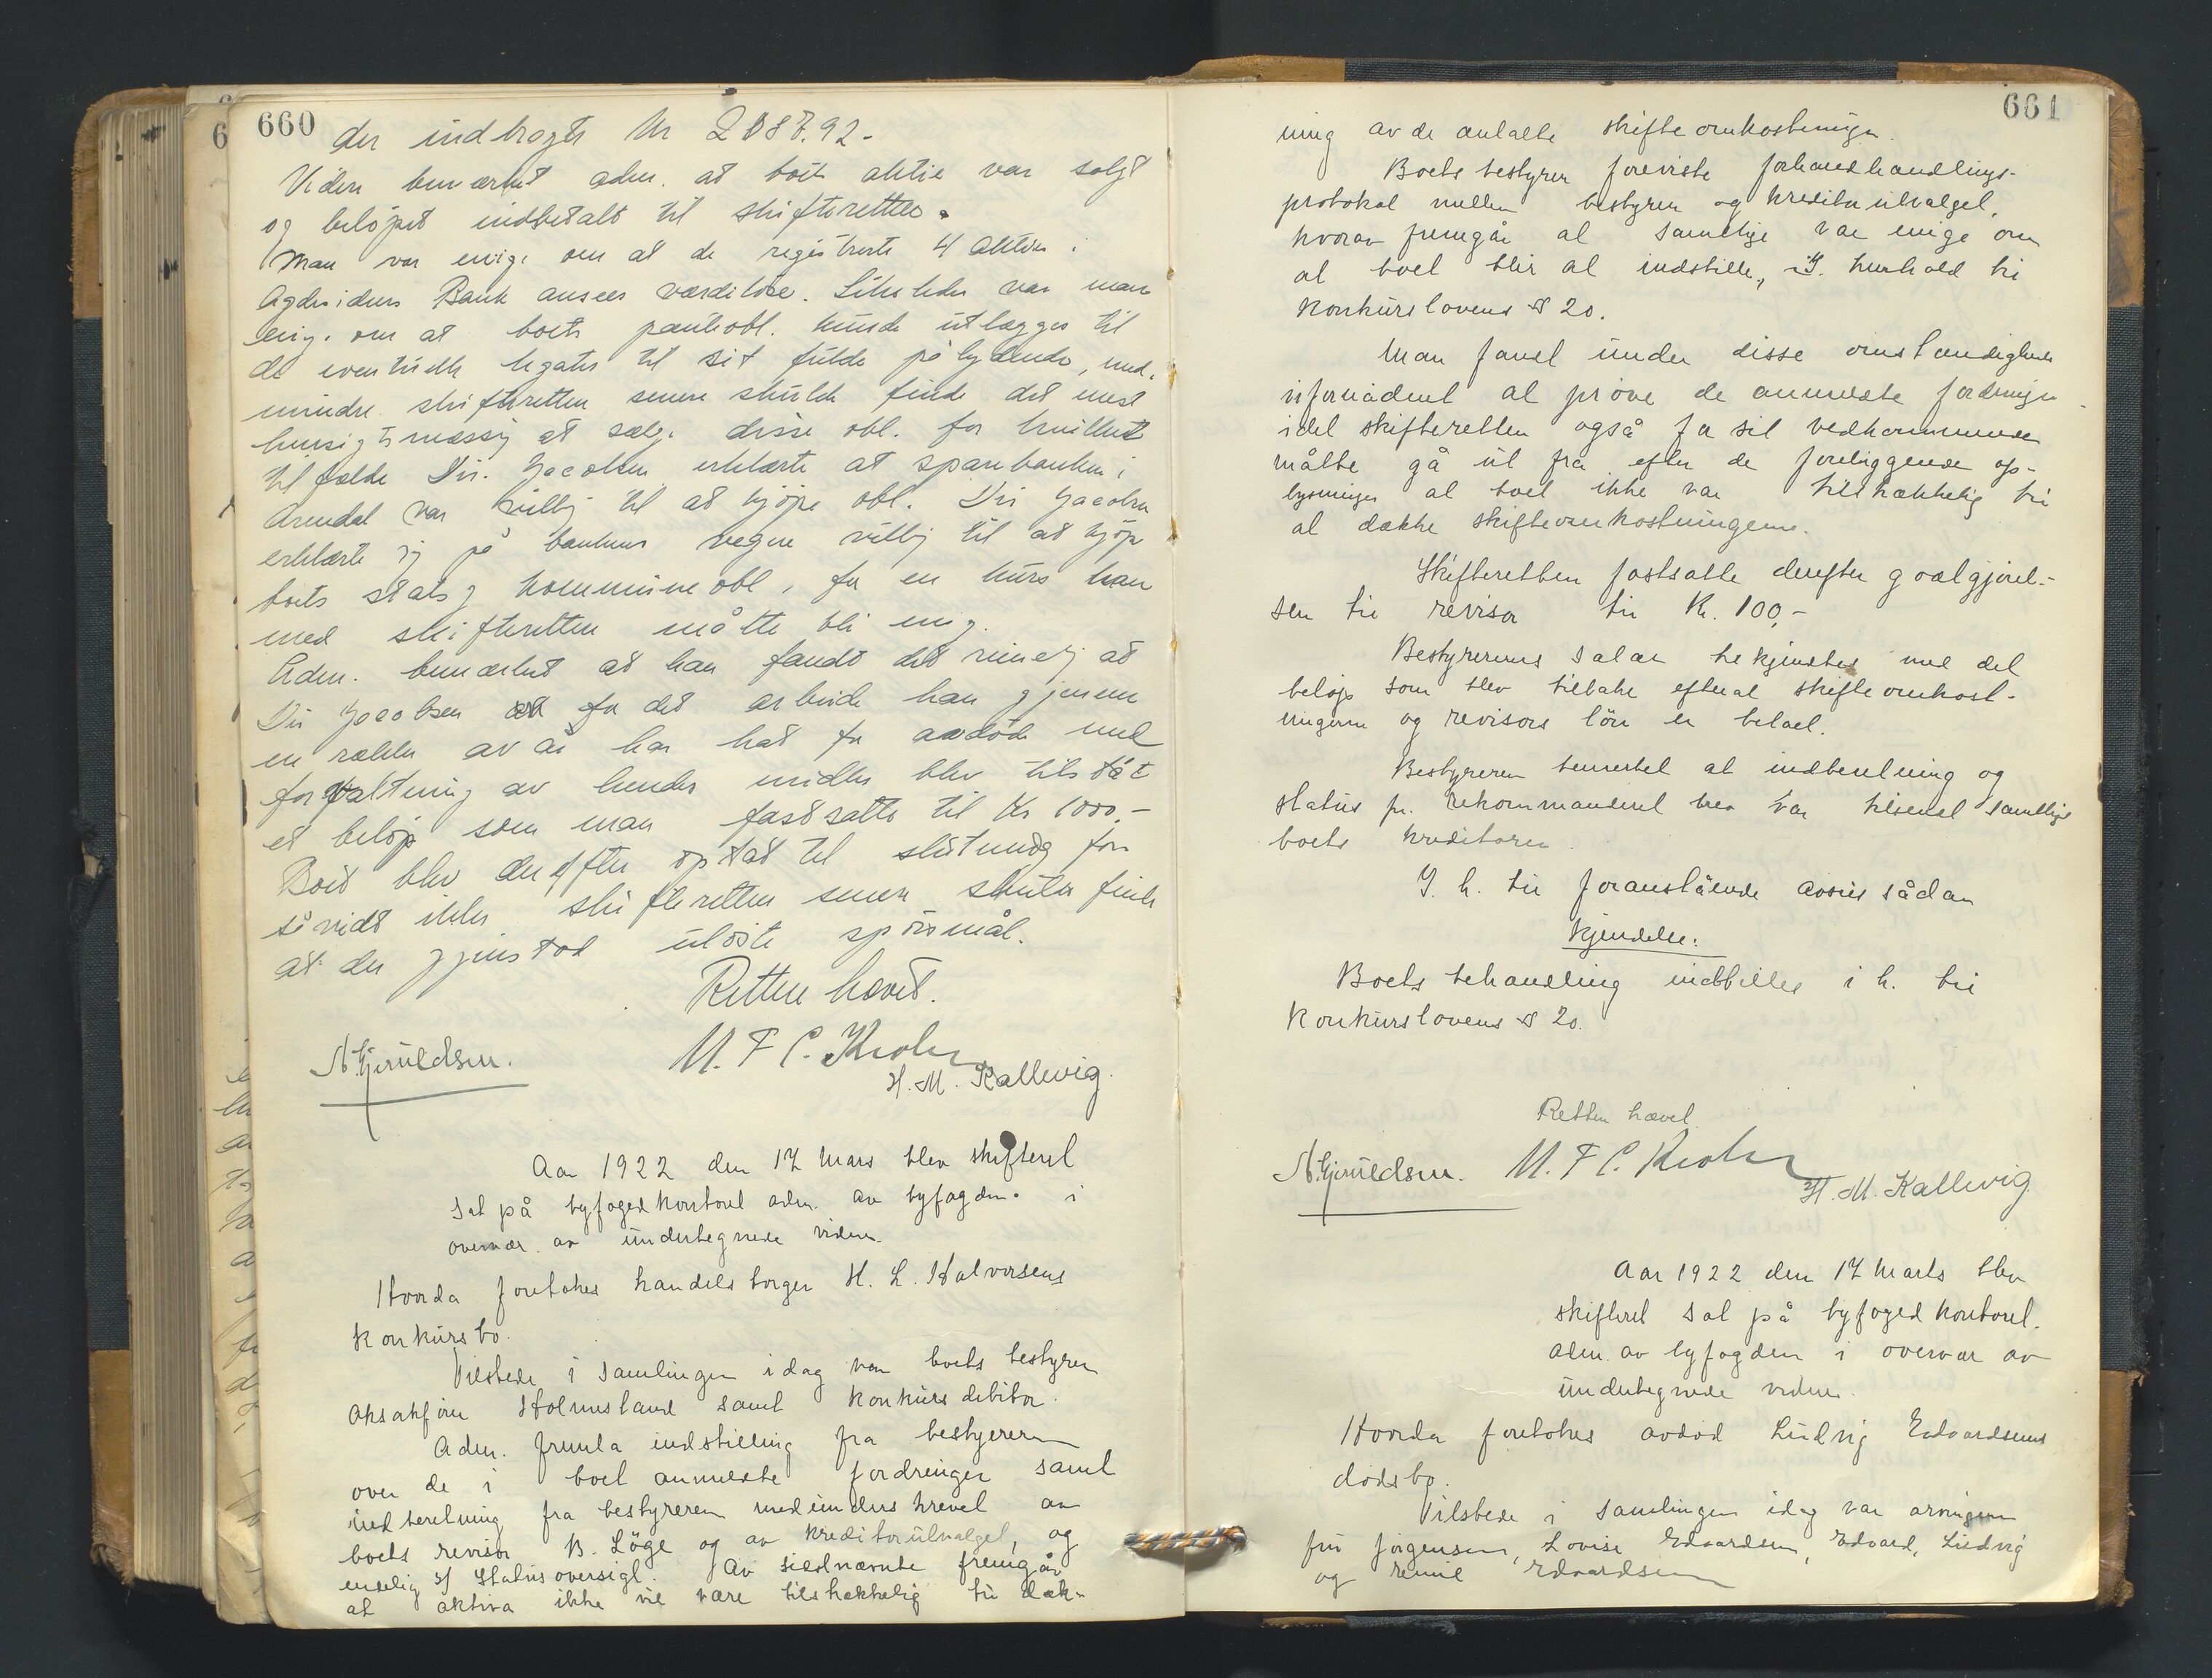 660
der indbragte Kr 2087.92.-
Videre bemærket adm. at boets aktie var solgt
og beløpet indbetalt til skifteretten.
Man var enige om at de registrerte 4 aktier i
Agdesidens Bank ansees værdiløse. Likeledes var man
enig. om at boets pantobl. kunde utlægges til
de eventuelle legater til sit fulde pålydende, med.
mindre skifteretten senere skulde finde det mest
hensigtsmæssig at sælge disse obl. for hvilket
tilfælde Dir. Jacobsen erklærte at sparebanken i
Arendal var villig til at kjøpe obl. Dir Jacobsen
erklærte sig på bankens vegne villig til at kjøpe
boets stats og kommuneobl, for en kurs han
med skifteretten måtte bli enig.
Adm. bemærket at han fandt det rimelig at
Dir Jacobsen for det arbeide han gjennem
en række av år har hat for avdøde med
forvaltning av hendes midler blev tilståt
et beløp som man fastsatte til Kr 1000.-
Boet blev derefter optat til slutning for
såvidt ikke skifteretten senere skulde finde
at der gjenstod uløste spørsmål.
Retten hævet.
N. Gjeruldsen. M. F C. Krohn
H. M. Kallevig.
Aar 1922 den 17 Mars blev skifteret
sat på byfogedkontoret adm. av byfogden i
overvær av undertegnede vidner.
Hvorda foretokes handelsborger H. L. Halvorsens
konkursbo.
Tilstede i samlingen idag var boets bestyrer
oksakfører Holmesland samt konkursdebitor.
Adm. fremla indstilling fra bestyreren
over de i boet anmeldte fordringer samt
indberetning fra bestyreren medunderskrevet av
boets revisor B. Løge og av kreditorutvalget, og
endelig Statusoversigt. Av sidstnævnte fremgår
at aktiva ikke vil være tilstrækkelig til dæk-
661
ning av de antatte skifteomkostninger.
Boets bestyrer foreviste forhandlings-
protokol mellem bestyrer og kreditorutvalget,
hvorav fremgår at samtlige var enige om
at boet blir at indstille, i henhold til
Konkurslovens § 20.
Man fandt under disse omstændigheter
ufornødent at prøve de anmeldte fordringer
idet skifteretten også for sit vedkommende
måtte gå ut fra efter de foreliggende op-
lysninger at boet ikke var tilstrækkelig til
at dække skifteomkostningerne.
Skifteretten fastsatte derefter godtgjørel-
sen til revisor til Kr. 100,-
Bestyrerens salær bekjendtes med det
beløp som blev tilbake efterat skifteomkost-
ningerne og revisors løn er betalt.
Bestyreren bemerket at indberetning og
status pr. rekommanderet brev var tilsendt samtlige
boets kreditorer.
I. h. til foranstående avsies sådan
Kjendelse:
Boets behandling indstilles i h. til
Konkurslovens § 20.
Retten hævet
N. Gjeruldsen. M. F C. Krohn
H. M. Kallevig
Aar 1922 den 17 Marts blev
skifteret sat på byfogedkontoret.
adm. av byfogden i overvær av
undertegnede vidner.
Hvorda foretokes avdød Ludvig Edvardsens
dødsbo.
Tilstede i samlingen idag var arvingerne
fru Jørgensen, Lovise Edvardsen, Edvard, Ludvig
og Edvardsen